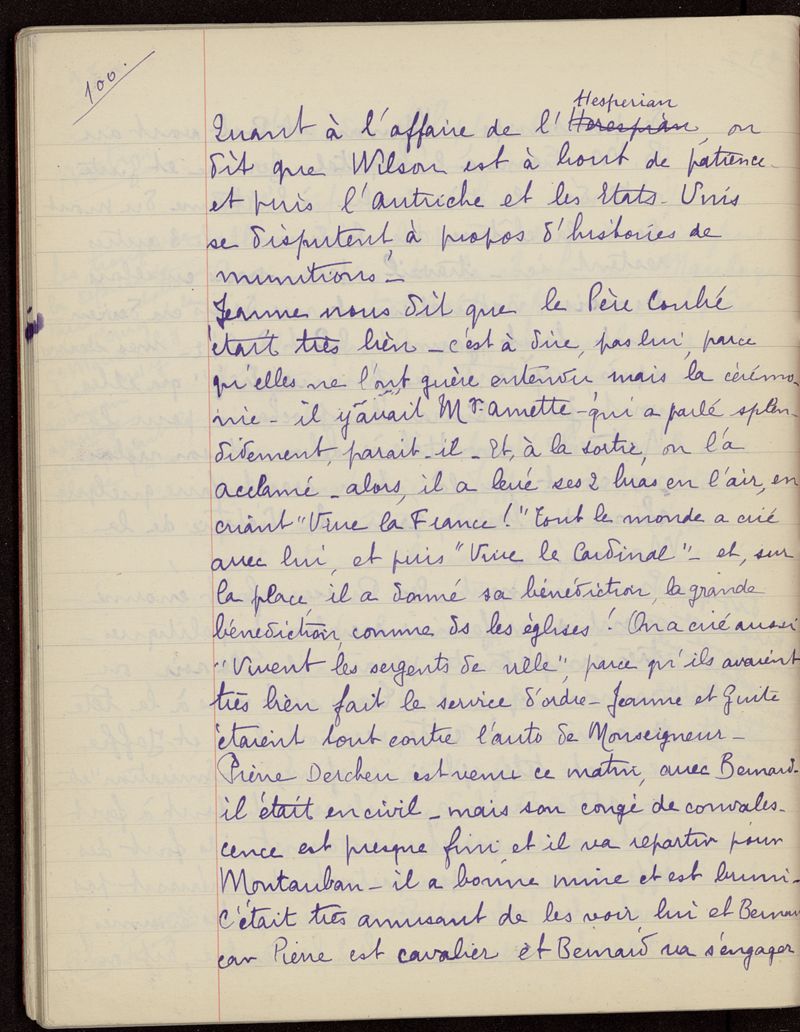 100.
Hesperian
Quant à l'affaire de l'Herespian, on
dit que Wilson est à bout de patience -
et puis l'Autriche et les Etats-Unis
se disputent à propos d'histoires de
munitions! -
Jeanne nous dit que le Père Coubé
était très bien - c'est à dire, pas lui, parce
qu'elles ne l'ont guère entendu mais la cérémo-
nie - il y avait Mgr Amette - qui a parlé splen-
didement, parait-il - Et, à la sortie, on l'a
acclamé - alors, il a levé ses 2 bras en l'air, en
criant "Vive la France!" tout le monde a crié
avec lui, et puis "Vive le Cardinal" - et, sur
la place, il a donné sa bénédiction, la grande
bénédiction, comme ds les églises! On a crié aussi
"Vivent les sergents de ville", parce qu'ils avaient
très bien fait le service d'ordre - Jeanne et Guite
étaient tout contre l'auto de Monseigneur -
Pierre Dercheu est venu ce matin, avec Bernard -
il était en civil - mais son congé de convales-
cence est presque fini et il va repartir pour
Montauban - il a bonne mine et est bruni -
C'était très amusant de les voir, lui et Bernard
car Pierre est cavalier et Bernard va s'engager